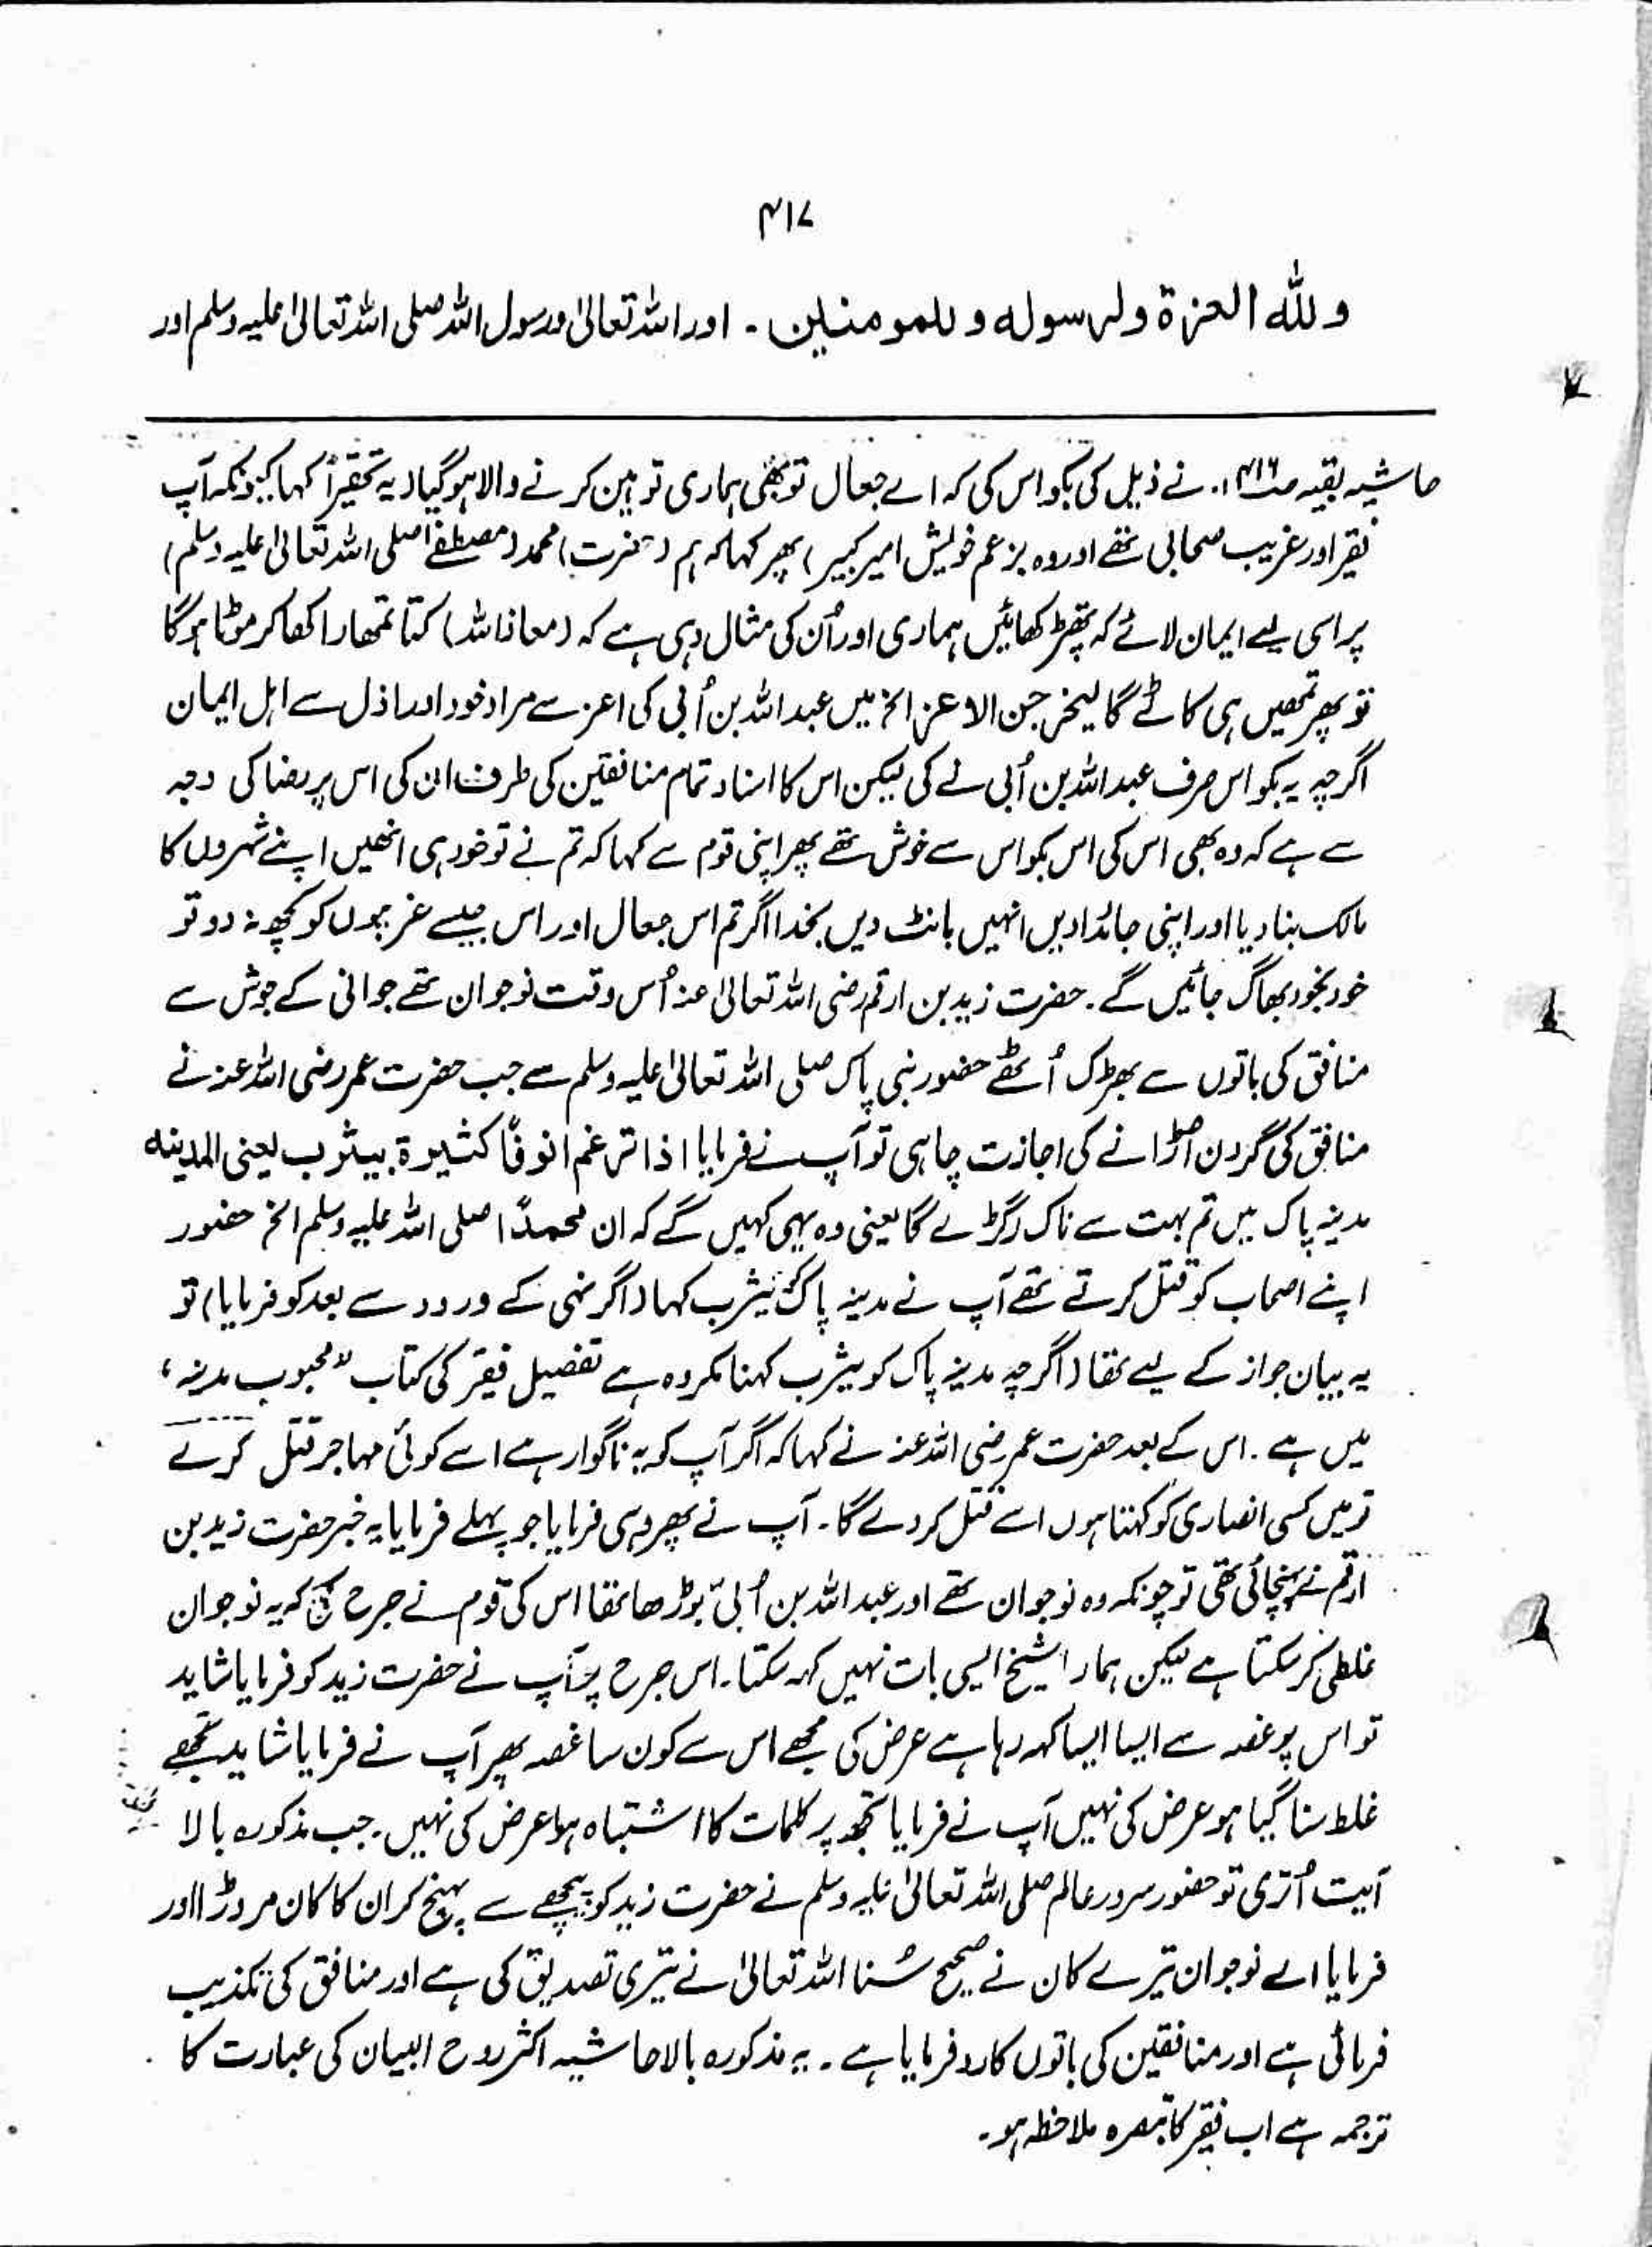 ۴۱۷
وللّٰه العزة ولرسوله وللمومنین ۔ اور اللہ تعالیٰ ورسول اللہ صلی اللہ تعالیٰ علیہ وسلم اور
حاشیہ بقیہ صـ۴۱۶۔ نے ذیل کی بکواس کی کہ اے جعال تو بھی ہماری توہین کرنے والا ہوگیا (یہ تحقیراً کہا کیونکہ آپ
فقیر اور غریب صحابی تھے اور وہ بزعم خویش امیر کبیر) پھر کہا کہ ہم (حضرت) محمد (مصطفےٰ صلی اللہ تعالیٰ علیہ وسلم)
پر اسی لیے ایمان لائے کہ تھپڑ کھائیں ہماری اور اُن کی مثال وہی ہے کہ (معاذ اللہ) کتا تمھارا کھا کر موٹا ہوگا
تو پھر تمھیں ہی کاٹے گا لیخرجن الاعز الخ میں عبد اللہ بن اُبی کی اعز سے مراد خود اور اذل سے اہل ایمان
اگرچہ یہ بکواس صرف عبد اللہ بن اُبی نے کی لیکن اس کا اسناد تمام منافقین کی طرف ان کی اس پر رضا کی وجہ
سے ہے کہ وہ بھی اس کی اس بکواس سے خوش تھے پھر اپنی قوم سے کہا کہ تم نے تو خود ہی انھیں اپنے شہروں کا
مالک بنا دیا اور اپنی جائدادیں انہیں بانٹ دیں بخدا اگر تم اس جعال اور اس جیسے غریبوں کو کچھ نہ دو تو
خود بخود بھاگ جائیں گے ۔ حضرت زید بن ارقم رضی اللہ تعالیٰ عنہ اُس وقت نوجوان تھے جوانی کے جوش سے
منافق کی باتوں سے بھڑک اُٹھے حضور نبی پاک صلی اللہ تعالیٰ علیہ وسلم سے جب حضرت عمر رضی اللہ عنہ نے
منافق کی گردن اڑانے کی اجازت چاہی تو آپ نے فرمایا اذا ترغم انوفًا کثیرۃ بیثرب یعنی المدینه
مدینہ پاک میں تم بہت سے ناک رگڑے گا یعنی وہ یہی کہیں گے کہ ان محمدًا صلی اللہ علیہ وسلم الخ حضور
اپنے اصحاب کو قتل کرتے تھے آپ نے مدینہ پاک کو یثرب کہا (اگر نہی کے ورود سے بعد کو فرمایا) تو
یہ بیان جواز کے لیے تھا (اگرچہ مدینہ پاک کو یثرب کہنا مکروہ ہے تفصیل فقیر کی کتاب ”محبوب مدینہ“
میں ہے ۔ اس کے بعد حضرت عمر رضی اللہ عنہ نے کہا کہ اگر آپ کو یہ ناگوار ہے اسے کوئی مہاجر قتل کرے
تو میں کسی انصاری کو کہتا ہوں اسے قتل کردے گا ۔ آپ نے پھر وہی فرمایا جو پہلے فرمایا یہ خبر حضرت زید بن
ارقم نے پہنچائی تھی تو چونکہ وہ نوجوان تھے اور عبد اللہ بن اُبی بوڑھا تھا اس کی قوم نے جرح کی کہ یہ نوجوان
غلطی کر سکتا ہے لیکن ہمارا شیخ ایسی بات نہیں کہہ سکتا ۔ اس جرح پر آپ نے حضرت زید کو فرمایا شاید
تو اس پر غصہ سے ایسا ایسا کہہ رہا ہے عرض کی مجھے اس سے کون سا غصہ پھر آپ نے فرمایا شاید تجھے
غلط سنا گیا ہو عرض کی نہیں آپ نے فرمایا تجھ پر کلمات کا اشتباہ ہوا عرض کی نہیں ۔ جب مذکورہ بالا
آیت اُتری تو حضور سرور عالم صلی اللہ تعالیٰ علیہ وسلم نے حضرت زید کو پیچھے سے پہنچ کر ان کا کان مروڑا اور
فرمایا اے نوجوان تیرے کان نے صحیح سُنا اللہ تعالیٰ نے تیری تصدیق کی ہے اور منافق کی تکذیب
فرمائی ہے اور منافقین کی باتوں کا رد فرمایا ہے ۔ یہ مذکورہ بالا حاشیہ اکثر روح البیان کی عبارت کا
ترجمہ ہے اب فقیر کا تبصرہ ملاحظہ ہو ۔